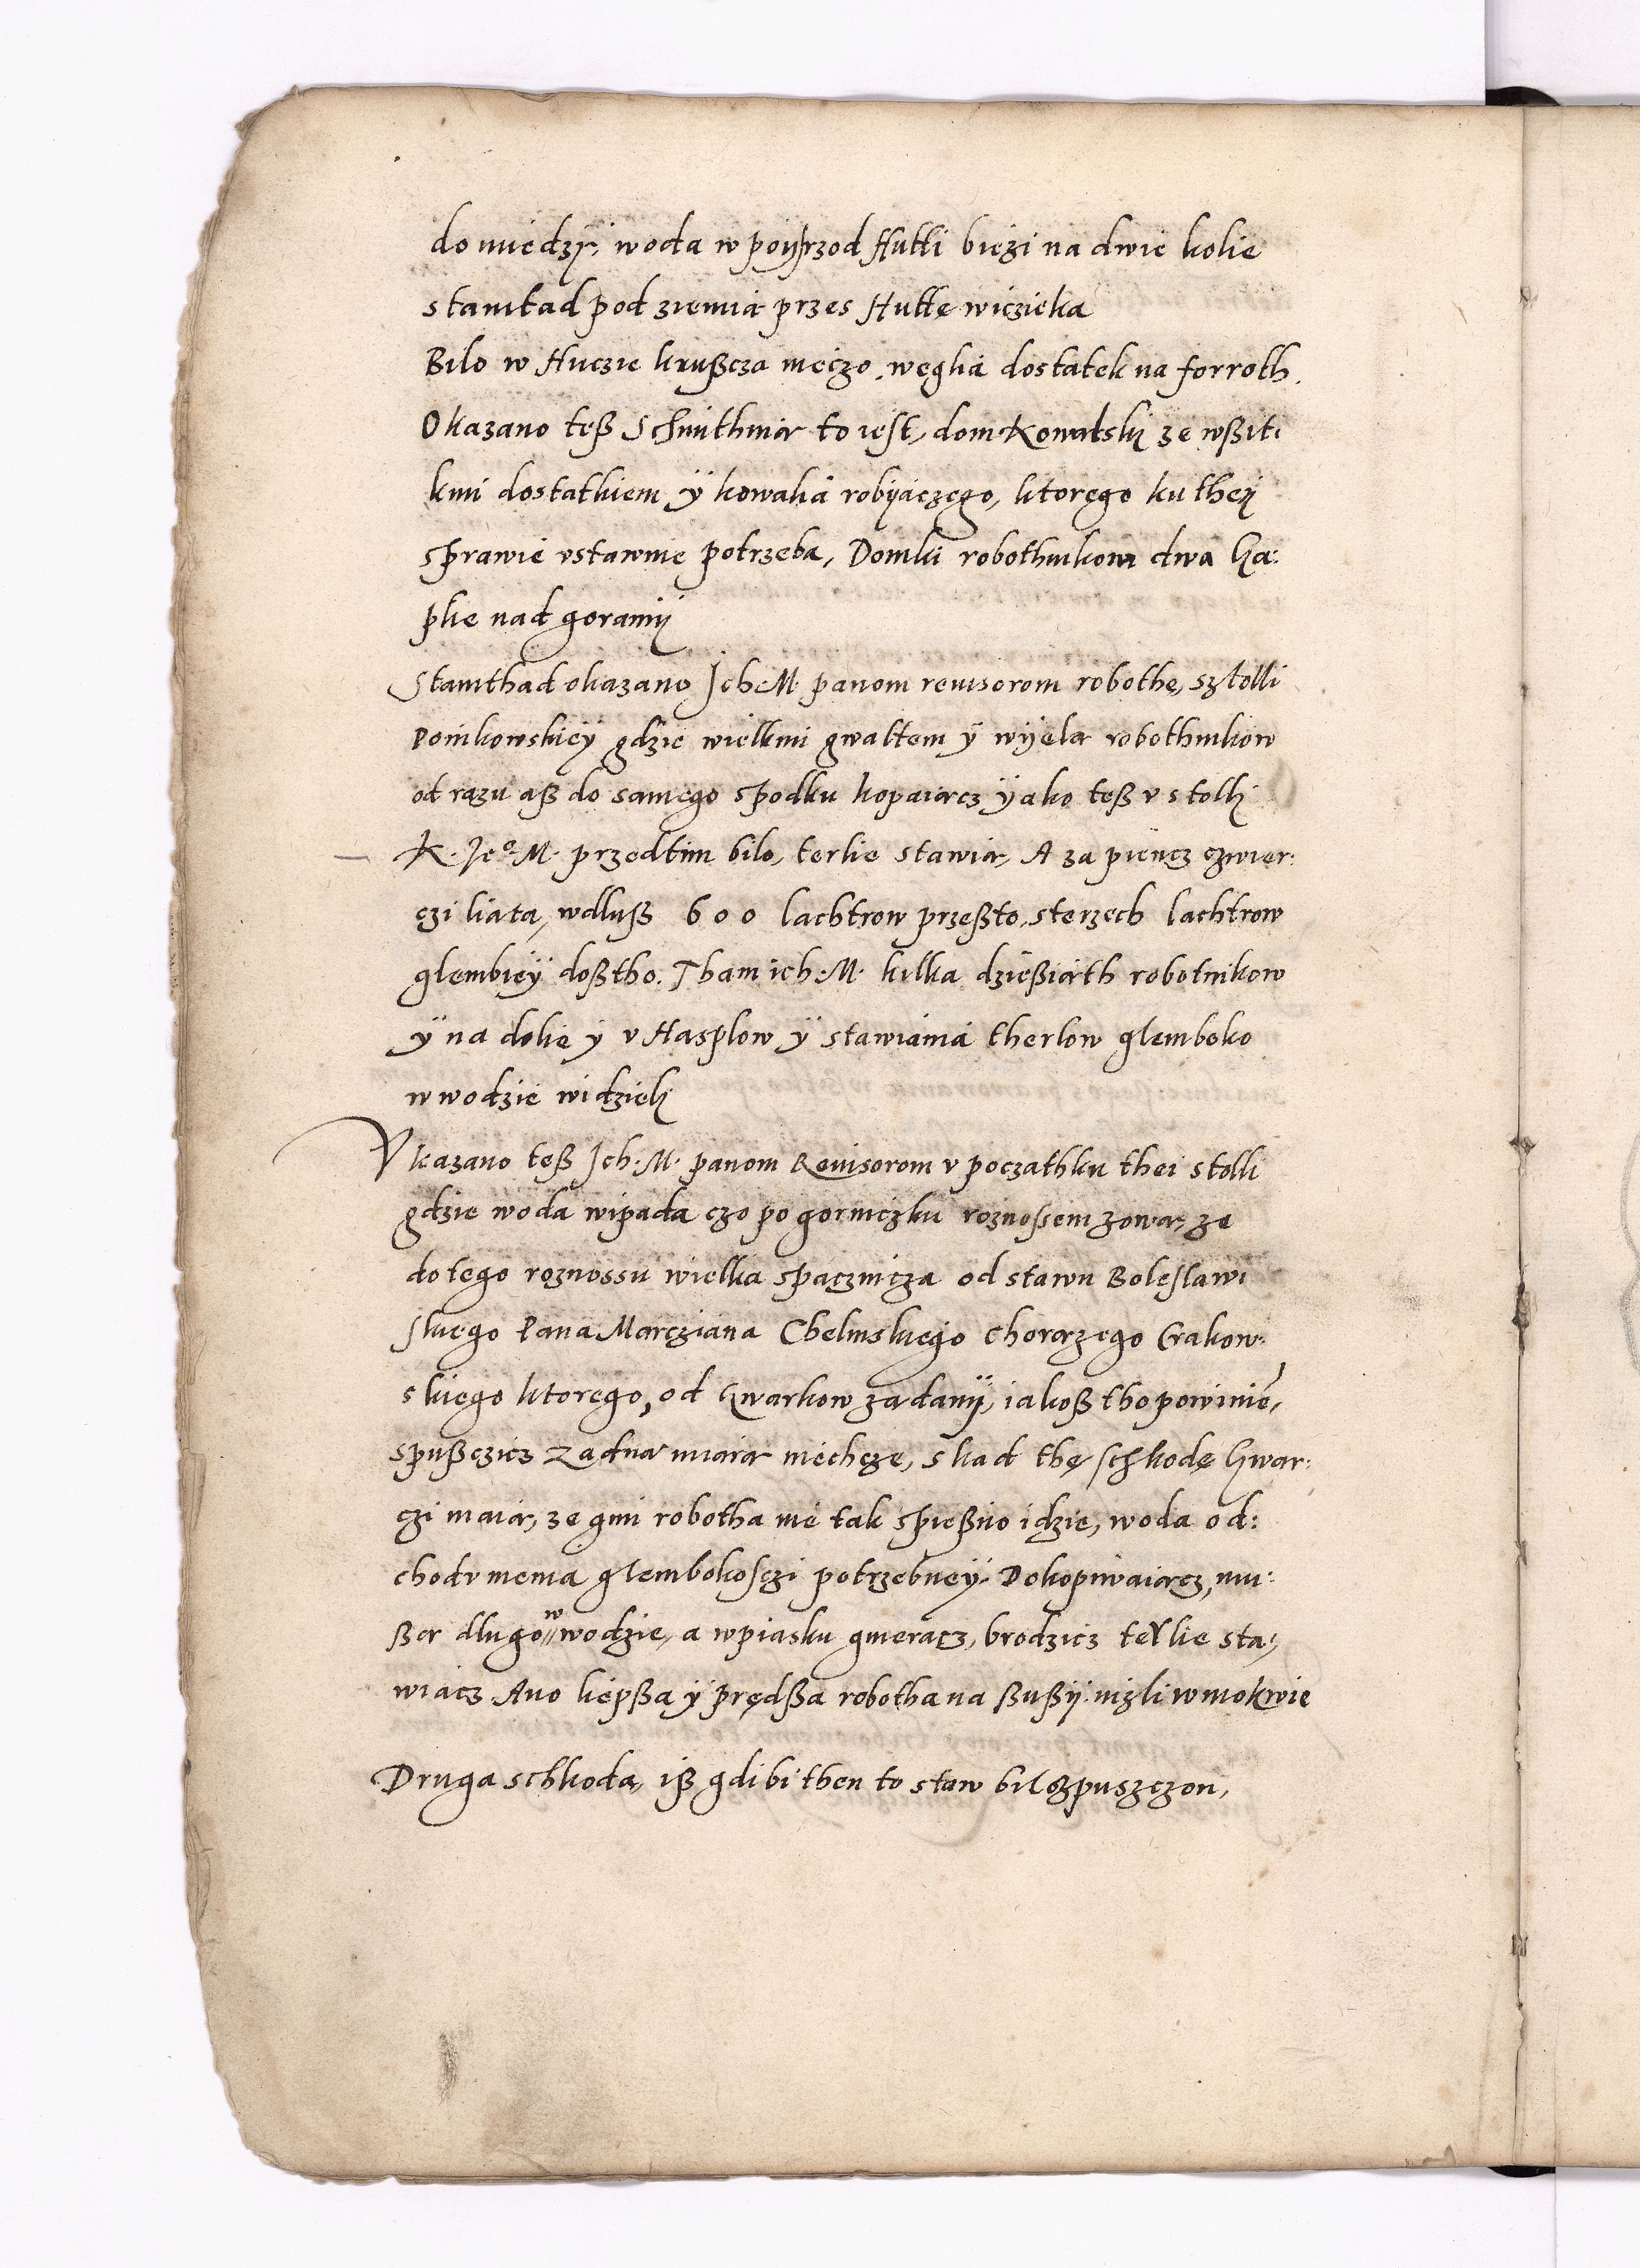 do miedzÿ, woda w pośrzod Hutti bieżi na dwie kolie
stamtad pod ziemią przes Huttę wiczieka
Bilo w Huczie krußcza nieczo, węglia dostatek na forroth.
Okazano teß Schmithnią to iest, dom Kowalskÿ ze wßit
kmi dostatkiem ÿ kowalia robiiączego, ktorego ku theÿ
sprawie vstawnie potrzeba, Domki robothnikom dwa ka:
plie nad goramÿ
Stamthad okazano Ich M. panom reuisorom robothę, sztolli
Ponikowskieÿ gdzie wielkmi gwaltem ÿ wÿelą robothnikow
od rązu aß do samego spodku kopaiącz ÿako teß v stollÿ
K. Jeº. M. przedtim bilo, terlie stawią, A za piencz czwier:
czi liata, wdluß 600 lachtrow przeßto, sterzech lachtrow
glembieÿ doßtho. Tham ich M. kilka dzießiąth robotnikow
ÿ na dolie ÿ v Hasplow ÿ stawiania therlow glemboko
w wodzie widzielÿ
Vkazano teß Ich. M. panom Reuisorom v poczathku thei stolli
gdzie woda wipada czo po gorniczku roznossem zową, ze
do tego roznossu wielka spącznicza od stawu Boleslawi
skiego Pana Marcziana Chelmskiego Chorązego Crakow:
skiego ktorego, od Gwarkow zadanÿ, iakoß tho powinie,
spußczicz zadną miarą niechcze, skad thę schkodę Gwar:
czi maią, ze gmi robotha nie tak spießno idzie, woda od:
chodv niema glembokosczi potrzebneÿ. Dokopiwaiącz, mu:
ßą długo w wodzie, a w piasku gmeracz, brodzicz terlie sta:
wiacz. Ano liepßa ÿ prędßa robotha na ßußÿ nizli w mokwie
Druga schkoda, iß gdibi then to staw bil zpuszczon,